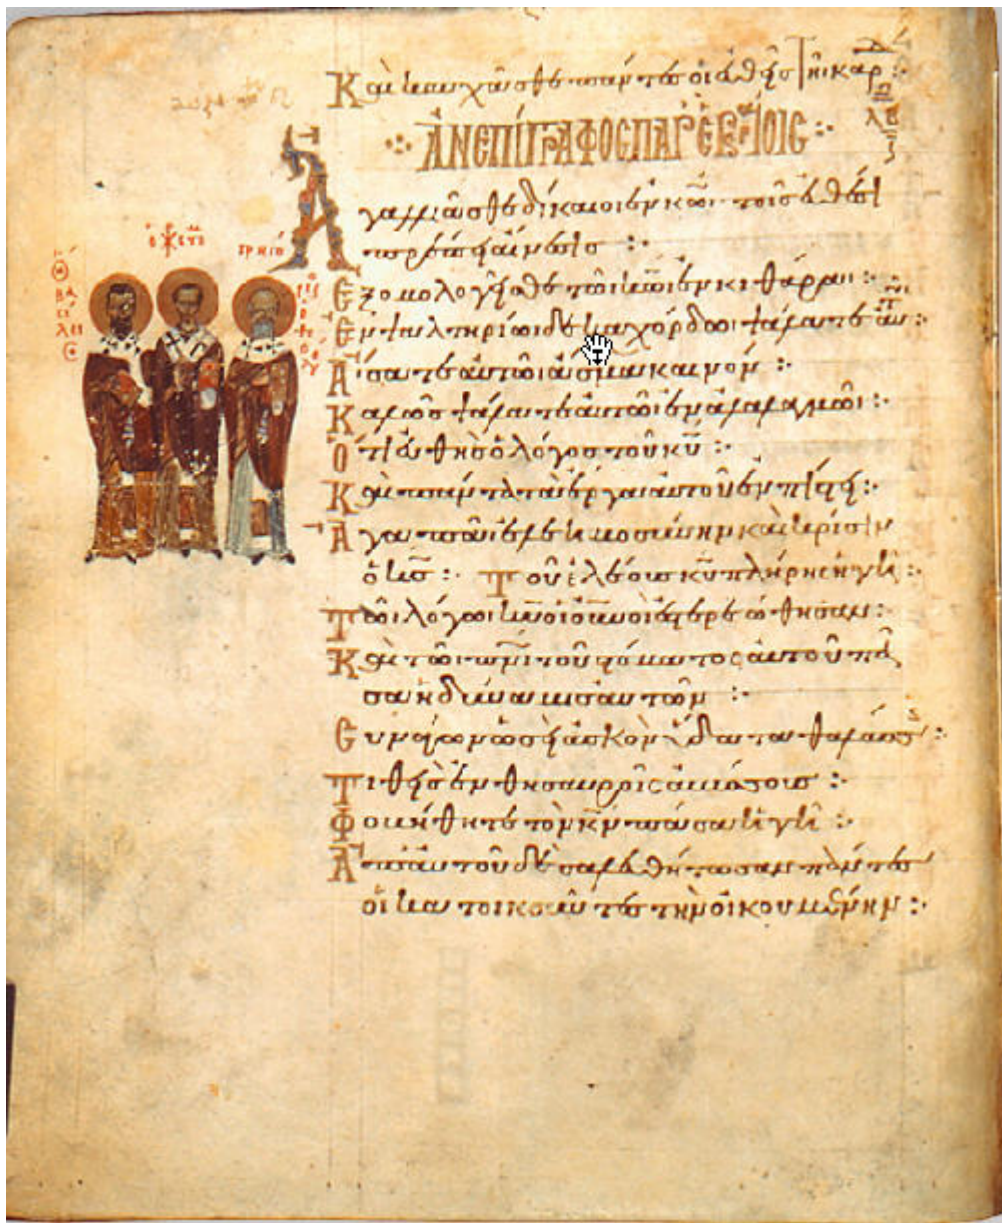 Καὶ καυχᾶσθε πάντες οἱ εὐθεῖς τῆι καρ
ΑΝΕΠΙΓΡΑΦΟC ΠΑΡ ΕΒΡΑΙΟΙC
Ἀγαλλιᾶσθε δίκαιοι ἐν κω τοῖς εὐθέσι
πρέπει αἴνεσις :·
Ἐξομολογεῖσθε τῶι κωι ἐν κιθάραι :·
Ἐν ψαλτηρίωι δεκαχόρδωι ψάλατε αὐ
Ἄισατε αὐτῶι ἆσμα καινόν :·
Καλῶς ψάλατε αὐτῶι ἐν ἀλαλαγμῶι :·
Ὅτι εὐθὴς ὁ λόγος τοῦ κυ :·
Καὶ πάντα τὰ ἔργα αὐτοῦ ἐν πίστει :·
Ἀγαπᾶι ἐλεημοσύνην καὶ κρίσιν
ὁ κς :· Τοῦ ἐλέους κυ πλήρης ἡ γῆ :·
Τῶι λόγωι κυ οἱ οὐνοι ἐστερεώθησαν :·
Καὶ τῶι πνι τοῦ στόματος αὐτοῦ πᾶ
σα ἡ δύναμις αὐτῶν :·
Συνάγων ὡσεὶ ἀσκὸν ὕδατα θαλάσσης :·
Τιθεὶς ἐν θησαυροῖς ἀβύσσους :·
Φοβηθήτω τὸν κν πᾶσα ἡ γῆ :·
Ἀπ αὐτοῦ δὲ σαλευθήτωσαν πάντες
οἱ κατοικοῦντες τὴν οἰκουμένην :·